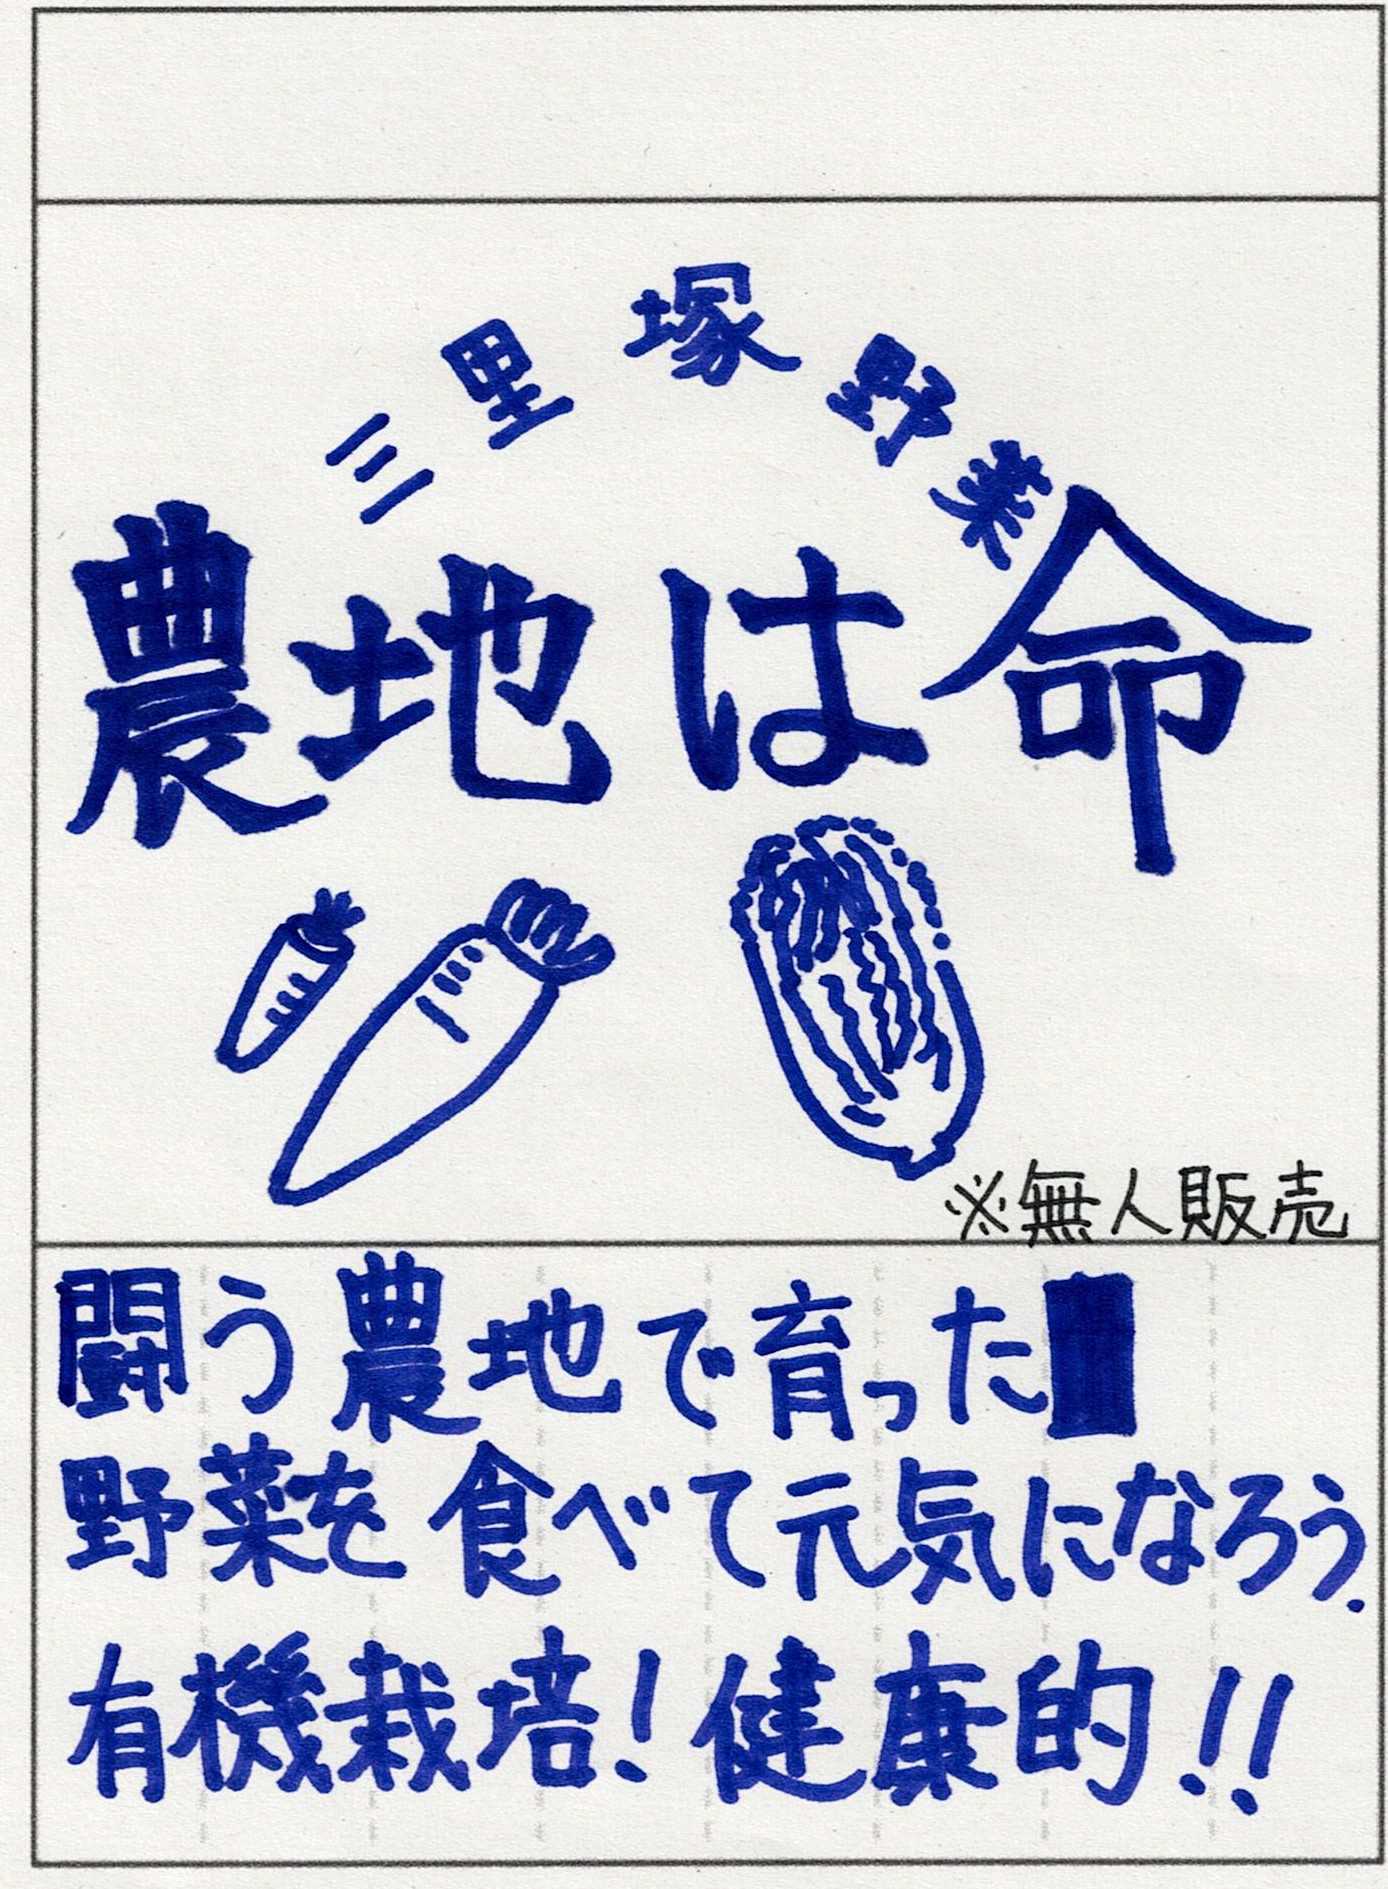 三里塚野菜
農地は命
※無人販売
闘う農地で育った
野菜を食べて元気になろう.
有機栽培!健康的!!